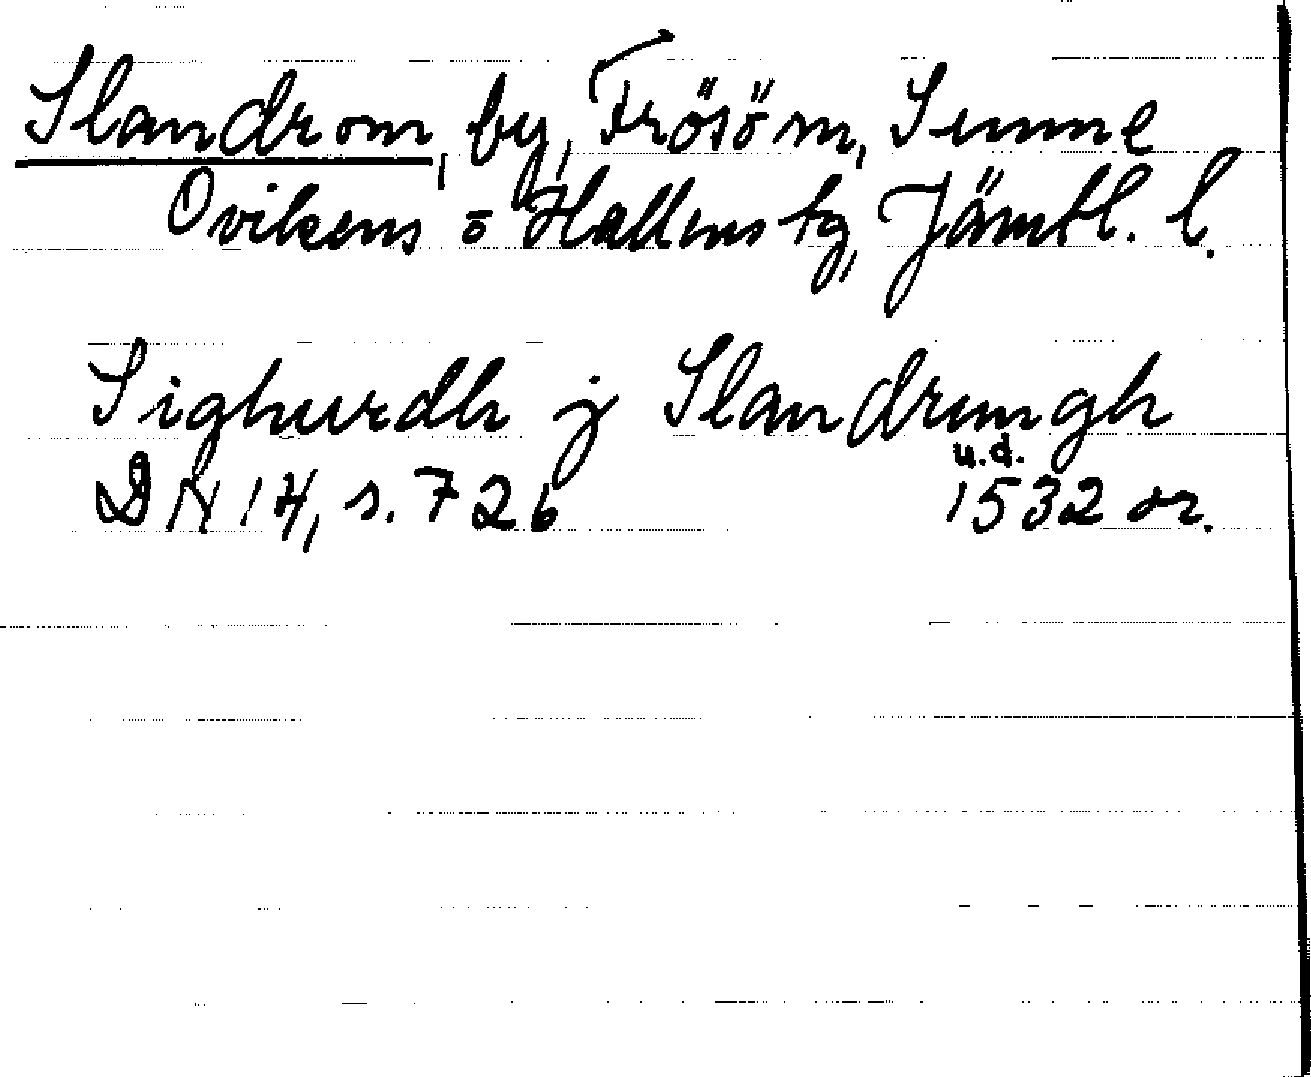 Slandrom, by, Frösö sn, Sunne
Ovikens o Hallens tg, Jämtl. l.
Sighurdh j Slandrungh
u.d.
DN 14, s. 726 1532 or.